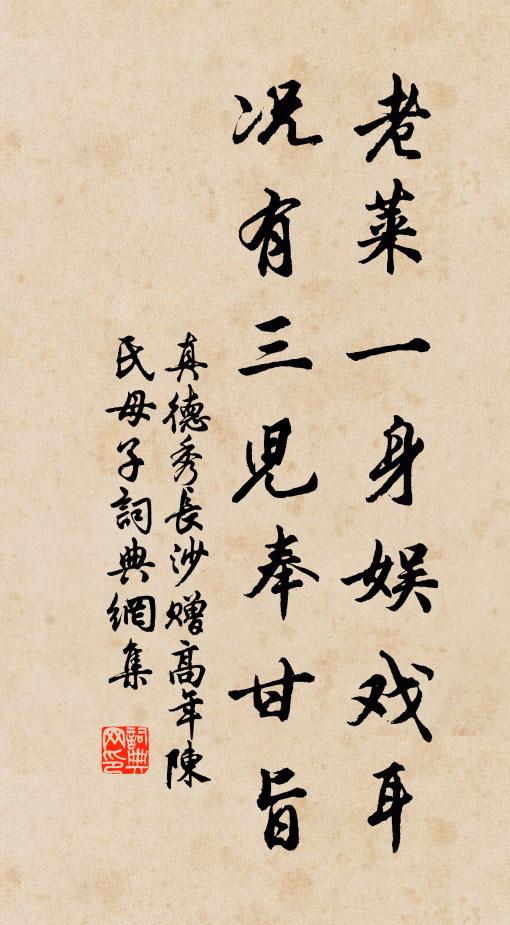 老莱一身娱戏耳
况有三児奉甘旨
真德秀長沙赠高年陳
氏母子詞典網集
詞典
网印